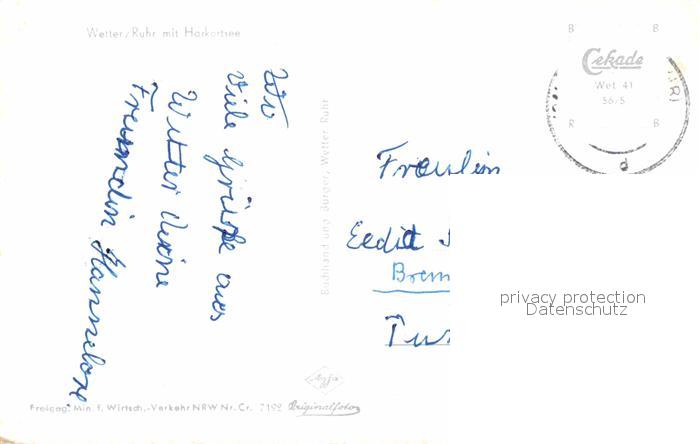 Wetter/Ruhr mit Harkortsee
Viele Grüße aus
Wetter Deine
Freundin Hannelore
Buchhandlung Bürger, Wetter Ruhr
B B
Cekade
Wet 41
56/5
R B
Fräulein
Edit
Brem
privacy protection
Datenschutz
Agfa
Freigeg. Min. f. Wirtsch.-Verkehr NRW Nr. Cr. 7192 Originalfoto